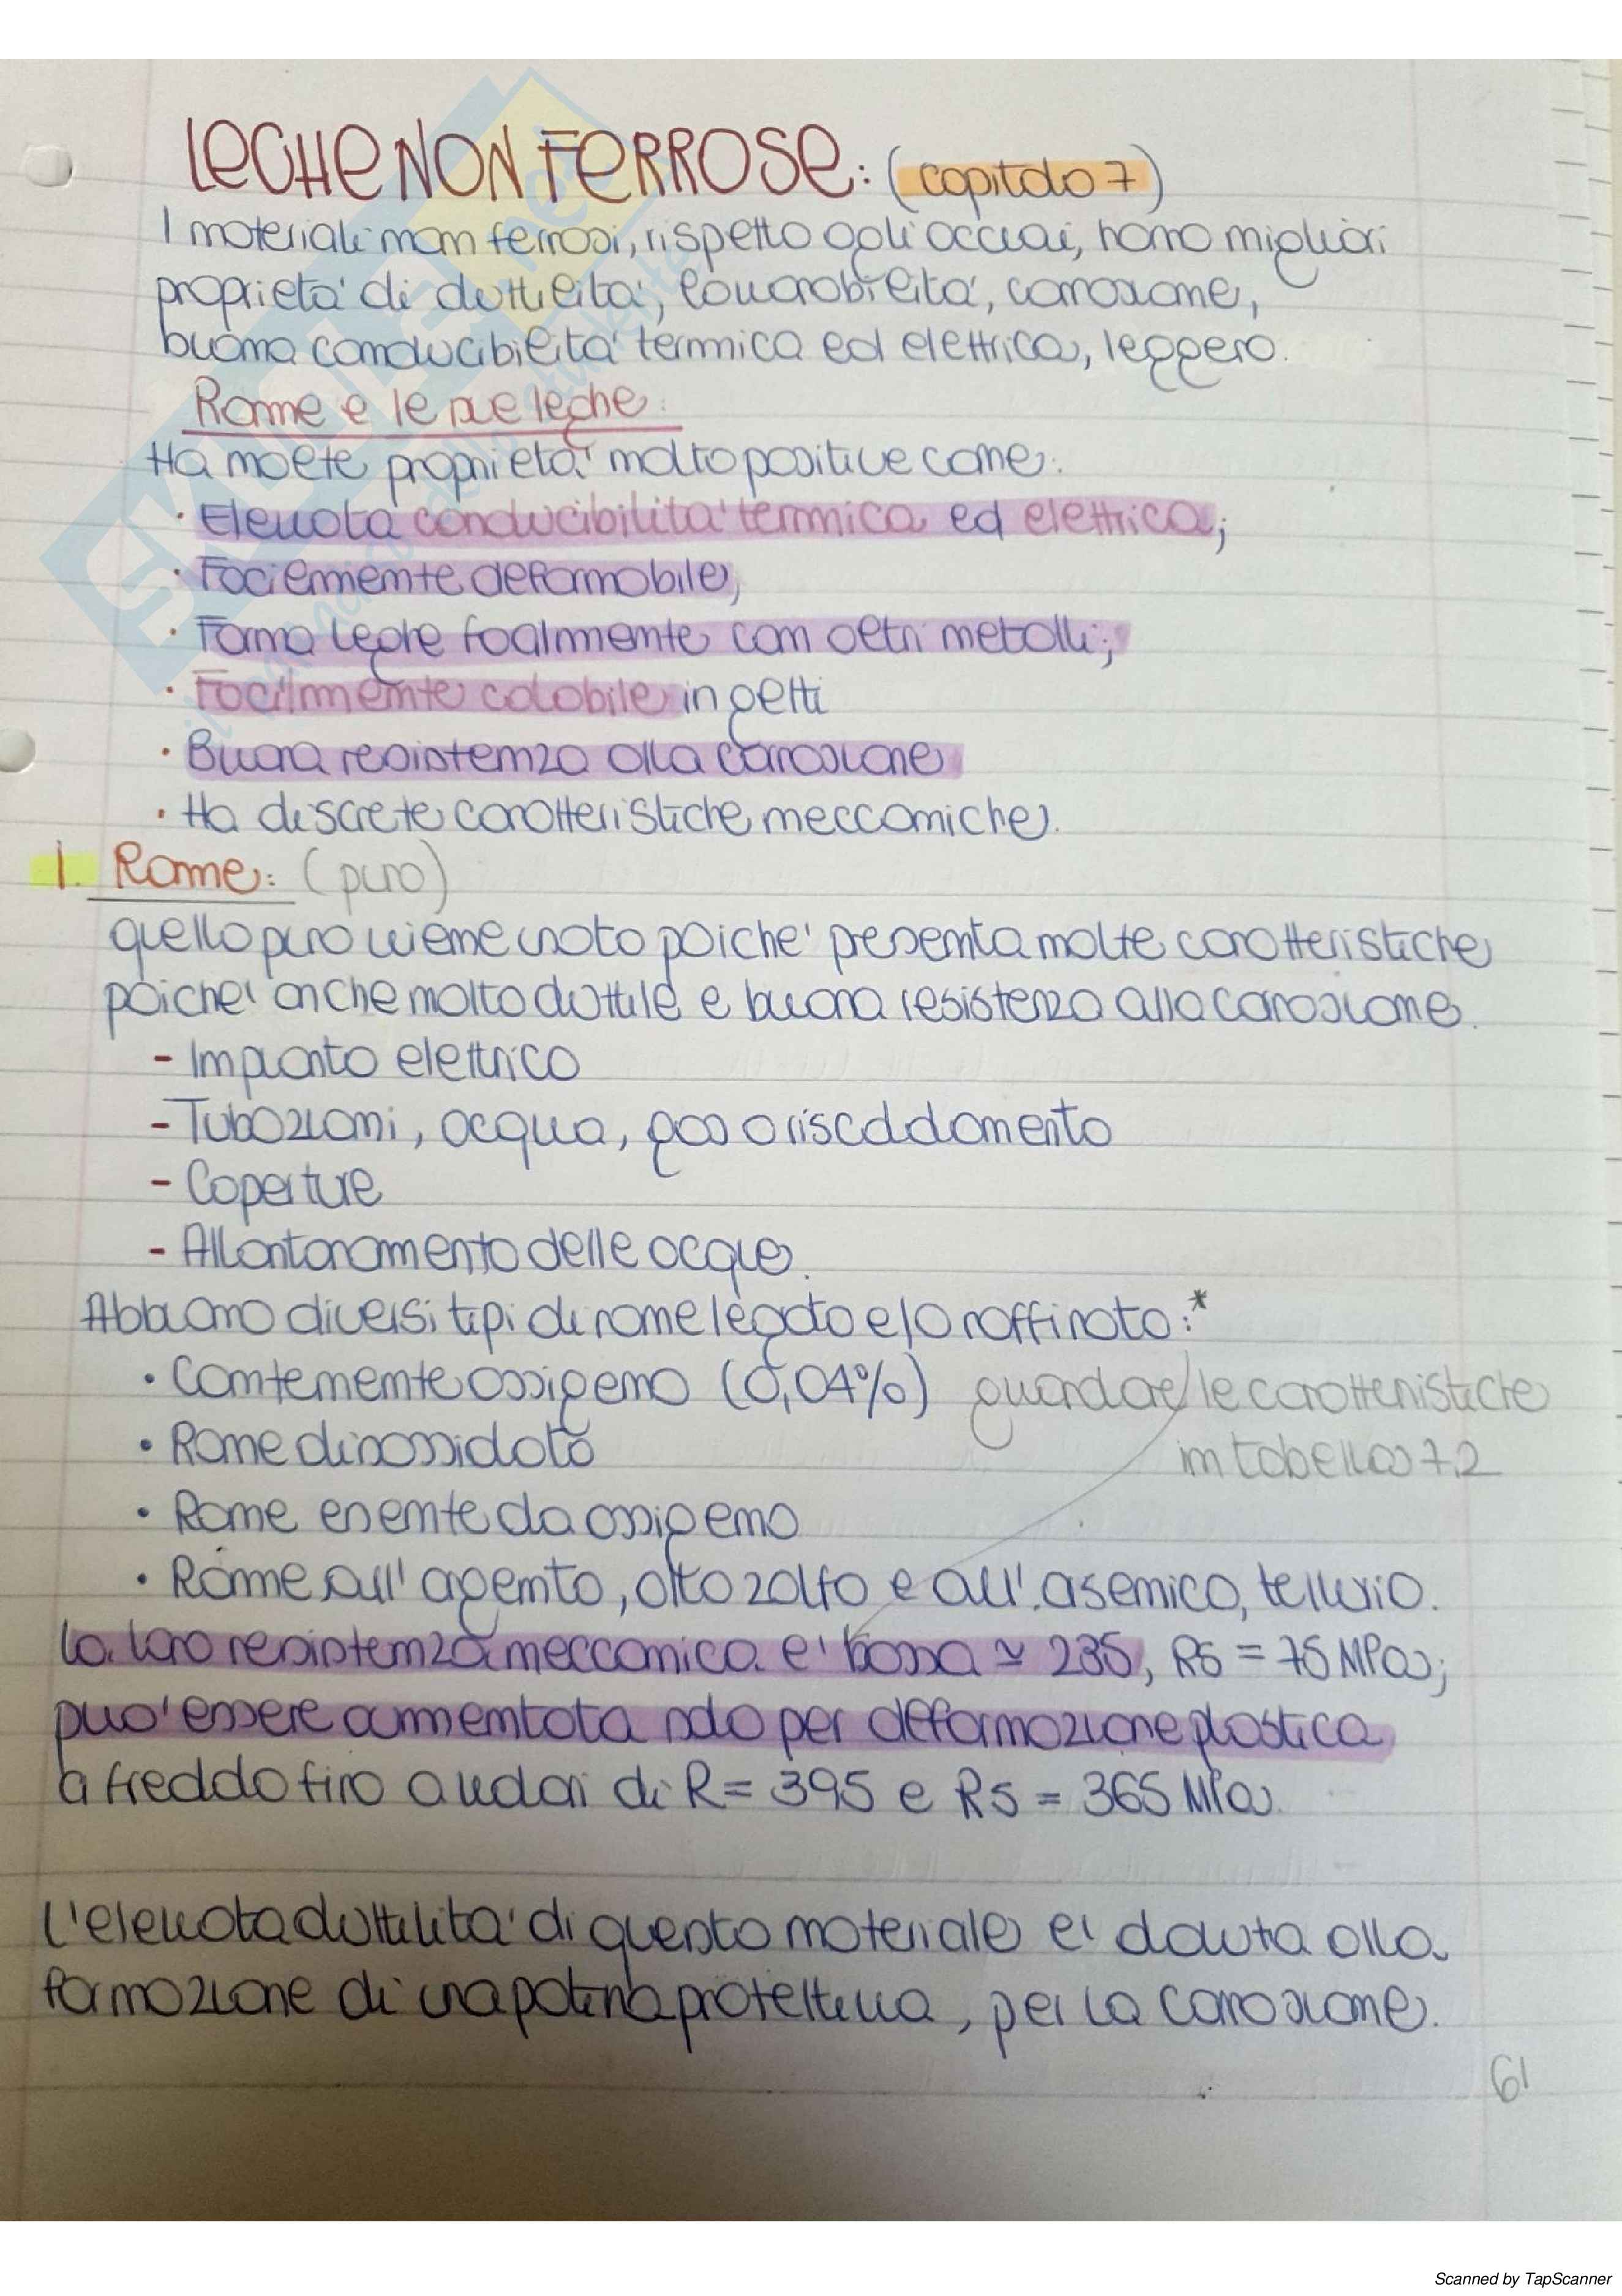 LEGHE NON FERROSE: (capitolo 7)
I materiali non ferrosi, rispetto agli acciai, hanno migliori
proprietà di duttilità, lavorabilità, corrosione,
buona conducibilità termica ed elettrica, leggero.
Rame e le sue leghe:
Ha molte proprietà molto positive come:
· Elevata conducibilità termica ed elettrica;
· Facilmente deformabile;
· Forma leghe facilmente con altri metalli;
· Facilmente colabile in getti
· Buona resistenza alla corrosione
· Ha discrete caratteristiche meccaniche.
1. Rame: (puro)
quello puro viene usato poiché presenta molte caratteristiche
poiché anche molto duttile e buona resistenza alla corrosione.
- Impianto elettrico
- Tubazioni, acqua, gas o riscaldamento
- Coperture
- Allontanamento delle acque.
Abbiamo diversi tipi di rame legato e/o raffinato:*
• Contenente ossigeno (0,04%) guardare le caratteristiche
• Rame disossidato in tabella 7.2
• Rame esente da ossigeno
• Rame all'argento, alto zolfo e all'arsenico, tellurio.
la loro resistenza meccanica è bassa ≃ 235, Rs = 75 MPa;
può essere aumentata solo per deformazione plastica
a freddo fino a valori di R = 395 e Rs = 365 MPa.
L'elevata duttilità di questo materiale è dovuta alla
formazione di una patina protettiva, per la corrosione.
61
Scanned by TapScanner